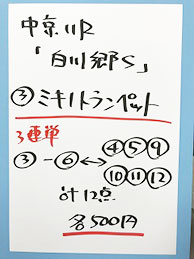 中京11R
「白川郷S」
③ミキノトランペット
3連単
③-⑥↔④⑤⑨
⑩⑪⑫
計12点
各500円